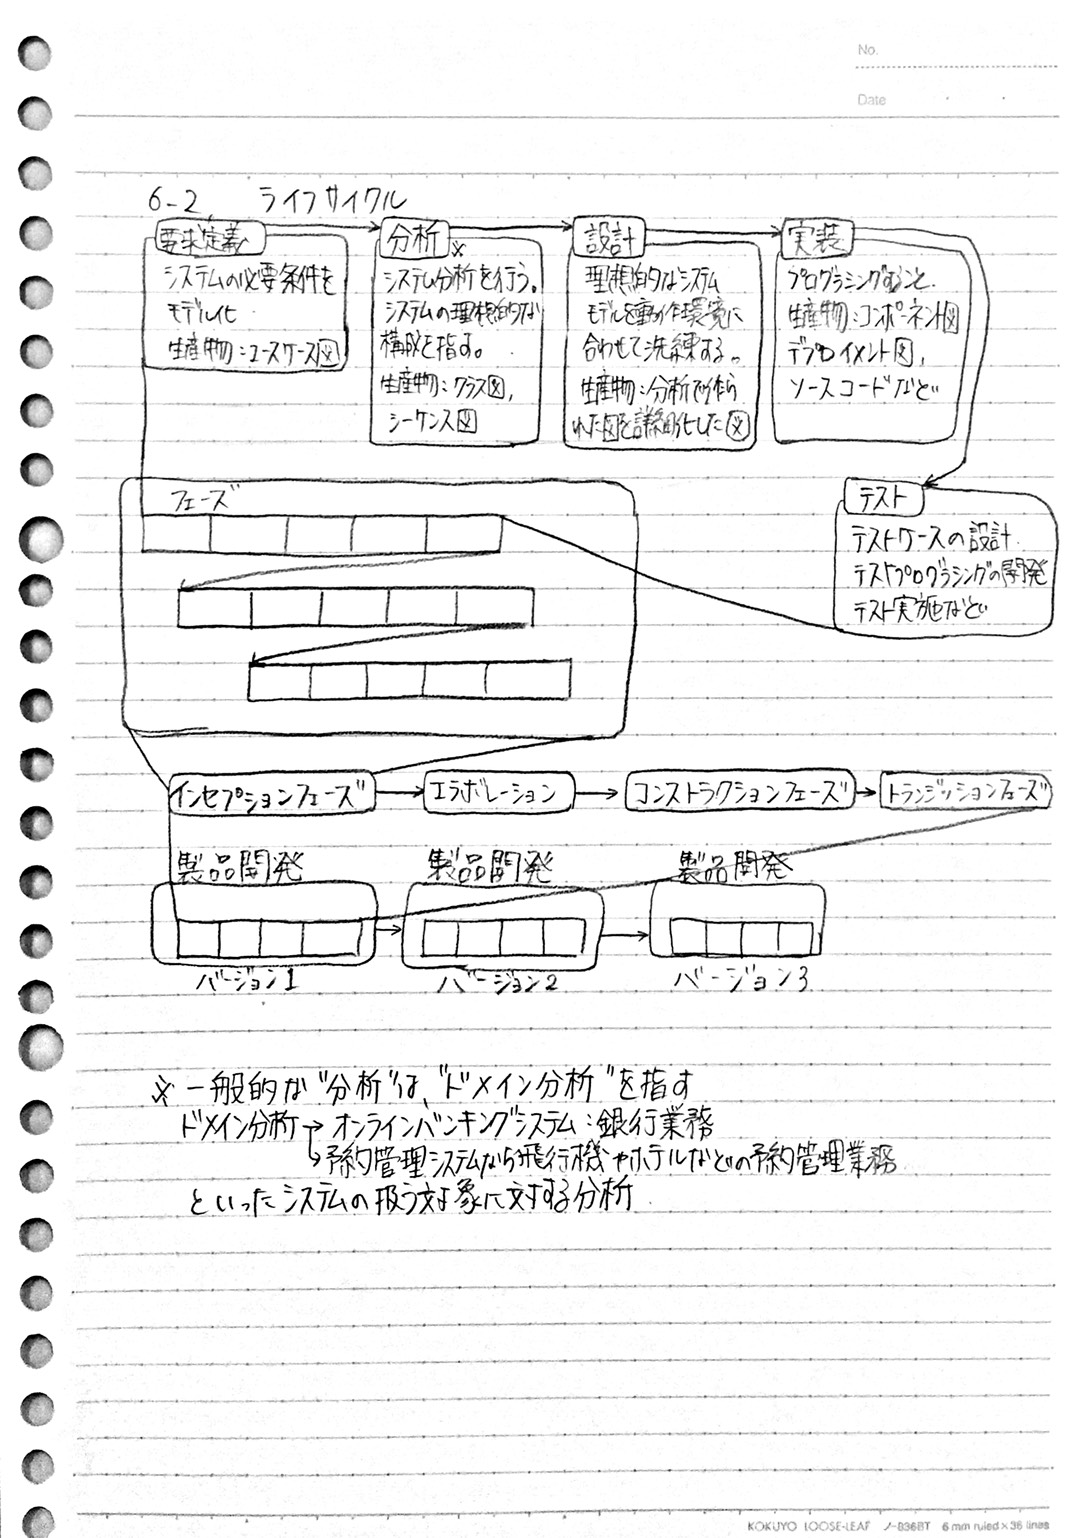 No.
Date
6-2 ライフサイクル
要求定義
システムの必要条件を
モデル化
生産物:ユースケース図
分析※
システム分析を行う。
システムの理想的な
構成を指す。
生産物:クラス図,
シーケンス図
設計
理想的なシステム
モデルを動作環境に
合わせて洗練する。
生産物:分析で作ら
れた図を詳細化した図
実装
プログラミングすること.
生産物:コンポーネント図
デプロイメント図,
ソースコードなど
テスト
テストケースの設計.
テストプログラミングの開発
テスト実施など
フェーズ
インセプションフェーズ
エラボレーション
コンストラクションフェーズ
トランジッションフェーズ
製品開発
製品開発
製品開発
バージョン1
バージョン2
バージョン3
※一般的な"分析"は、"ドメイン分析"を指す
ドメイン分析→オンラインバンキングシステム:銀行業務
↳予約管理システムなら飛行機やホテルなどの予約管理業務
といったシステムの扱う対象に対する分析.
KOKUYO LOOSE-LEAF ノ-836BT 6mm ruled×36 lines